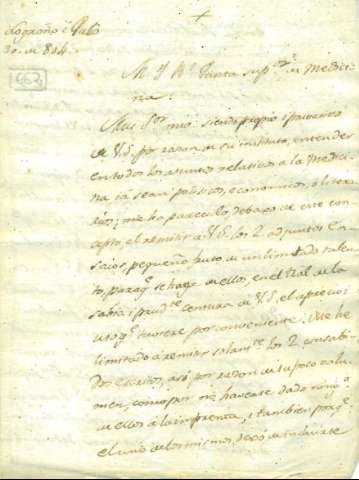 +
Logroño i Julio
30. de 804.
662
M. Y. R.l Junta sup.or de Medici-
na.
Mui S.or mio: siendo propio i privativo
de V.S. por razon de su instituto, entender
en todos los asuntos relativos a la Medici-
na ia sean politicos, economicos, ó litera-
rios; me ha parecido debaxo de este con-
cepto, el remitir a V.S. los 2 adjuntos En-
saios, pequeño fruto de mi limitado talen-
to, para q.e se haga de ellos, en el Tral de la
sabia i prud.te censura de V.S. el aprecio
q.e tuviere por conveniente. Me he
limitado a remitir solam.te los 2
Dos escritos, asi por razon de su poco volu-
men, como por no haverse dado ning.o
de ellos á la imprenta, i tambien porq.e
el uno de los mismos, dexó de incluirse